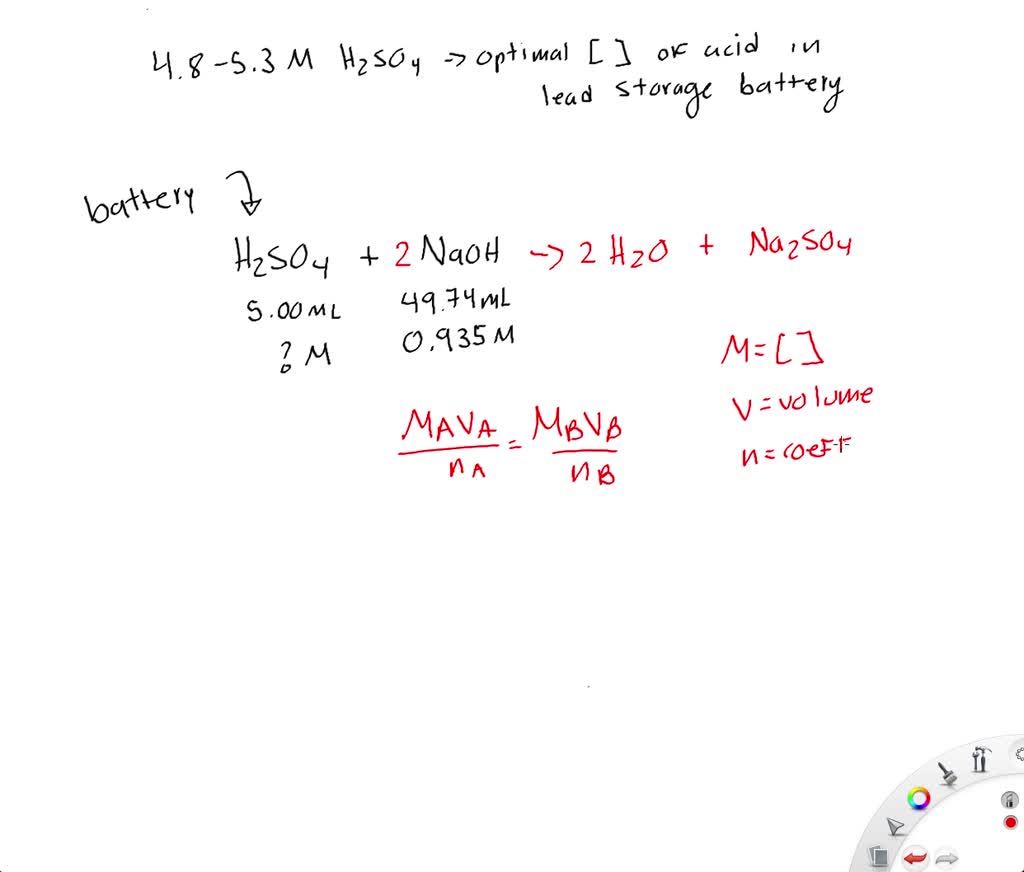 4.8-5.3 M H₂SO₄ → optimal [ ] of acid in
lead storage battery
battery
H₂SO₄ + 2 NaOH → 2 H₂O + Na₂SO₄
5.00 mL 49.74 mL
? M 0.935 M
M = [ ]
V = volume
n = coeff
MAVA/nA = MBVB/nB